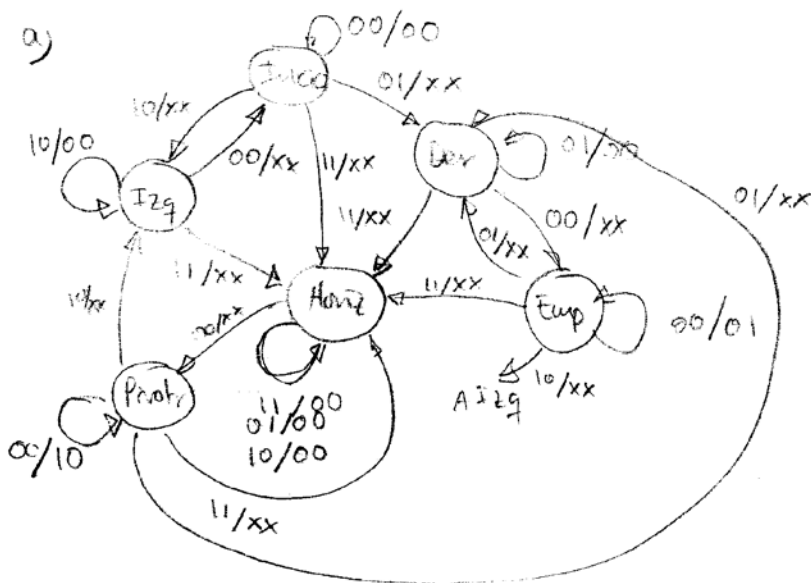 a)
00/00
Inicio
10/xx
01/xx
10/00
00/xx
11/xx
Der
01/00
Izq
11/xx
01/xx
00/xx
01/xx
11/xx
Horiz
11/xx
Emp
00/01
10/xx
00/xx
10/xx
A Izq
Pivote
11/00
01/00
10/00
00/10
11/xx